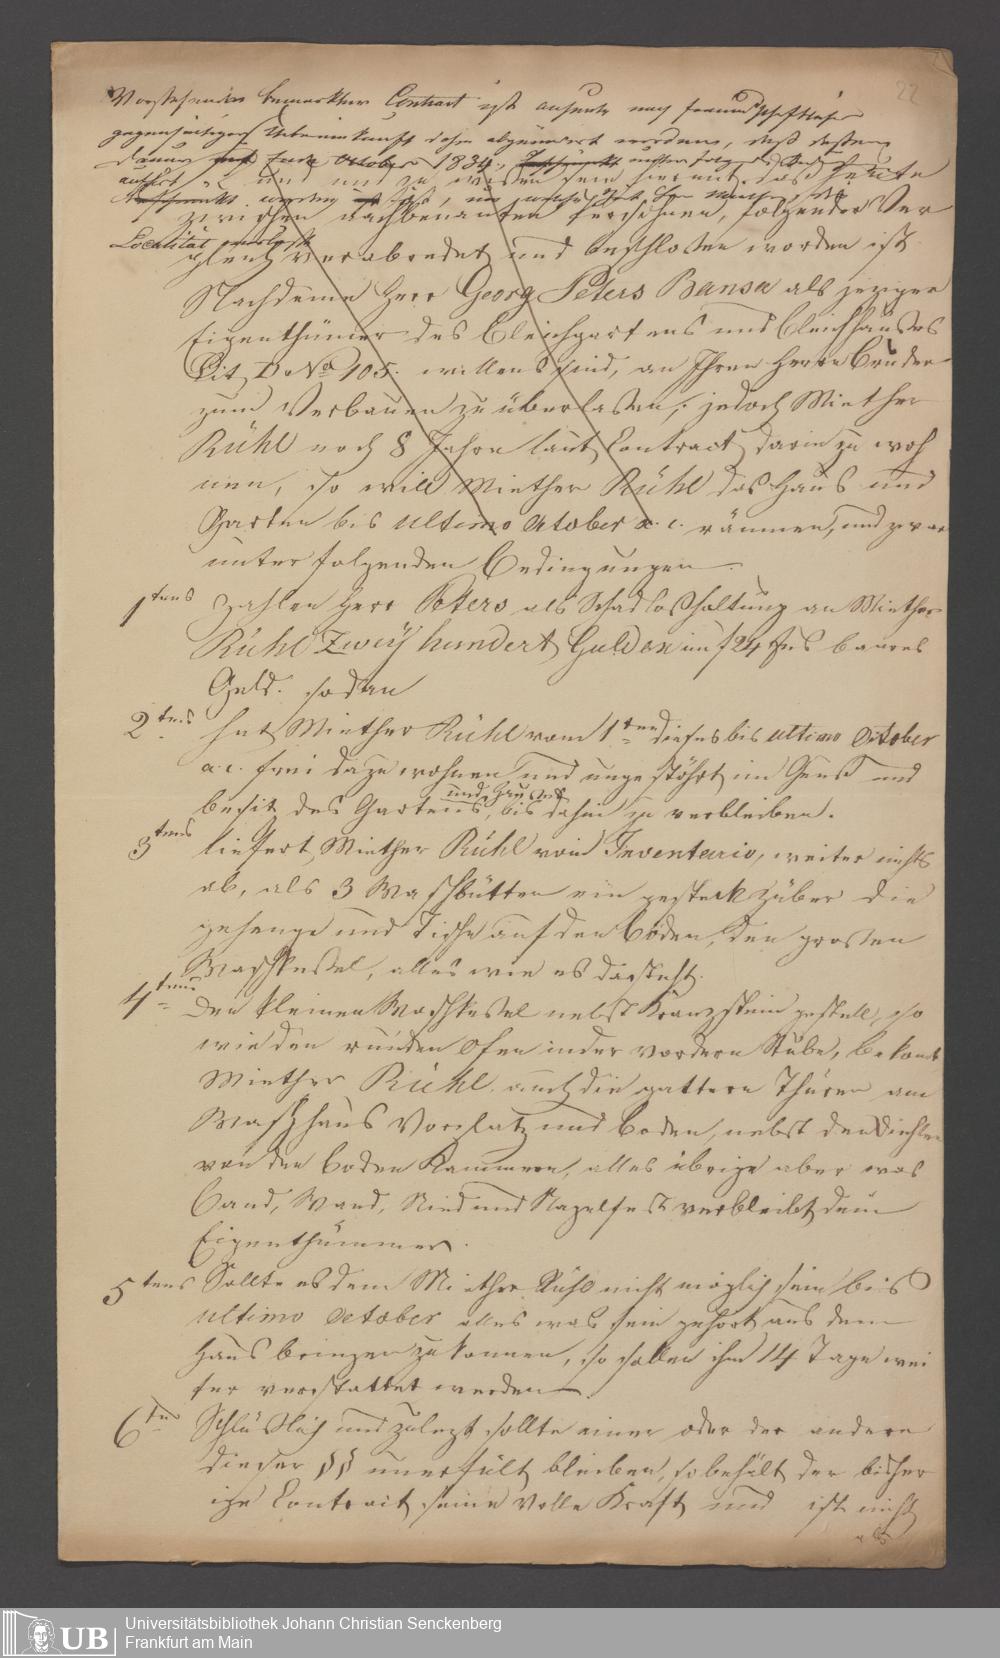 22
Vorstehender bemerkter Contract ist anheute nach freundschaftlicher
gegenseitiger Uebereinkunft dahin abgeändert worden, daß dessen
Dauer Ende October 1834,
und zu wissen sein hiermit, daß heute
zwischen nachbenannten Persohnen, folgender Ver
Localität
gleich verabredet und beschlossen worden ist
Nachdeme Herr Georg Peters Bansa als jeziger
Eigenthümer des Bleichgartens und Bleichhauses
Lit. D. No 105. willens sind, an Ihren Herrn Bruder
zum Verbauen zu überlassen, jedoch Miether
Rühl noch 8 Jahre laut Contract darin zu woh
nen, so will Miether Rühl das Haus und
Garten bis ultimo October a. c. räumen, und zwar
unter folgenden Bedingungen.
1tens Zahlen Herr Peters als Schadloshaltung an Miether
Rühl Zweÿ hundert Gulden im f 24 Fus baares
Geld. sodan
2tens hat Miether Rühl vom 1ten dieses bis ultimo October
a. c. frei da zu wohnen und ungestöhrt im Genuß und
und Hauses
besitz des Gartens, bis dahin zu verbleiben.
3tens liefert Miether Rühl vom Inventario, weiter nichts
ab, als 3 Waschbütten ein gesteck Züber die
gehenge und Tische auf den Böden, den grossen
Waschkessel, alles wie es dasteht.
4tens Den kleinen Waschkessel nebst Kranzstein gestell, so
wie den runden Ofen in der vordern Stube, bekomt
Miether Rühl. auch die gattern Thüren am
Waschhaus Vorplatz und Boden, nebst den Diehlen
von den Boden Kammern, alles übrige aber was
Band, Wand, Nied und Nagelfest verbleibt dem
Eigenthümmer.
5tens Sollte es dem Miether Rühl nicht möglich sein bis
ultimo October alles was sein gehört aus dem
Haus bringen zu können, so sollen ihm 14 Tage wei
ter verstattet werden.
6tens Schlüßlich und zulezt sollte einer oder der andere
dieser §§ unerfült bleiben, so behält der bisher
ige Contract seine volle Kraft und ist nicht
als
UB
Universitätsbibliothek Johann Christian Senckenberg
Frankfurt am Main